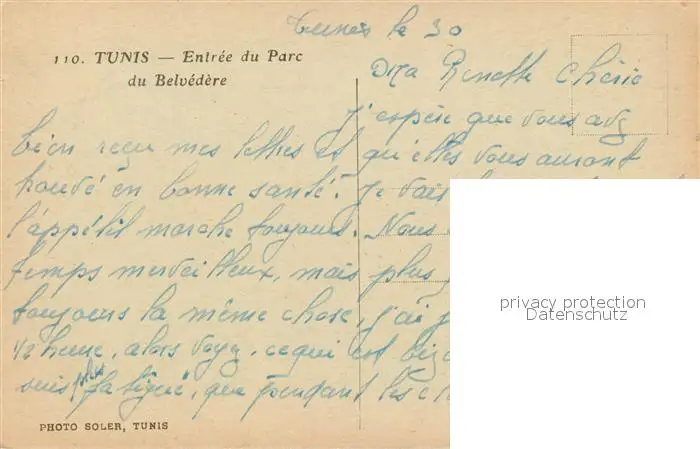 Tunis le 30
110. TUNIS — Entrée du Parc
du Belvédère
Ma Renette chérie
J'espère que vous avez
bien reçu mes lettres et qu'elles vous auront
trouvé en bonne santé. Je vais
l'appétit marche toujours. Nous
temps merveilleux, mais plus
toujours la même chose, j'ai
1/2 heure, alors voyez, ce qui est
suis plus fatigué, que pendant les
privacy protection
Datenschutz
PHOTO SOLER, TUNIS